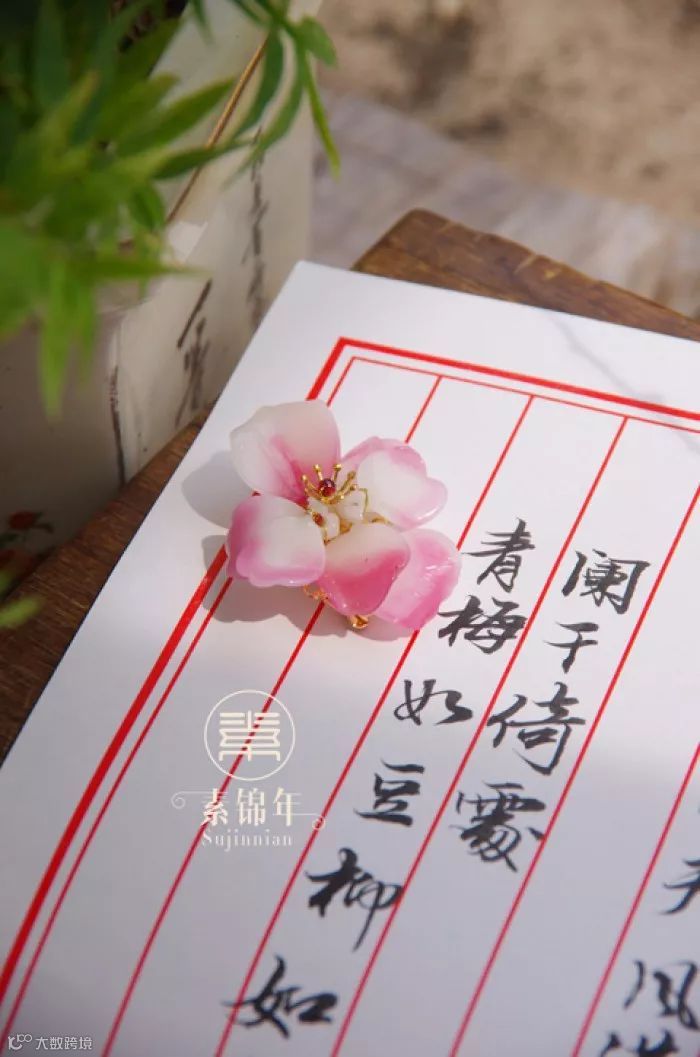 阑干倚處
青梅如豆柳如
素
素锦年
Sujinnian
大数跨境